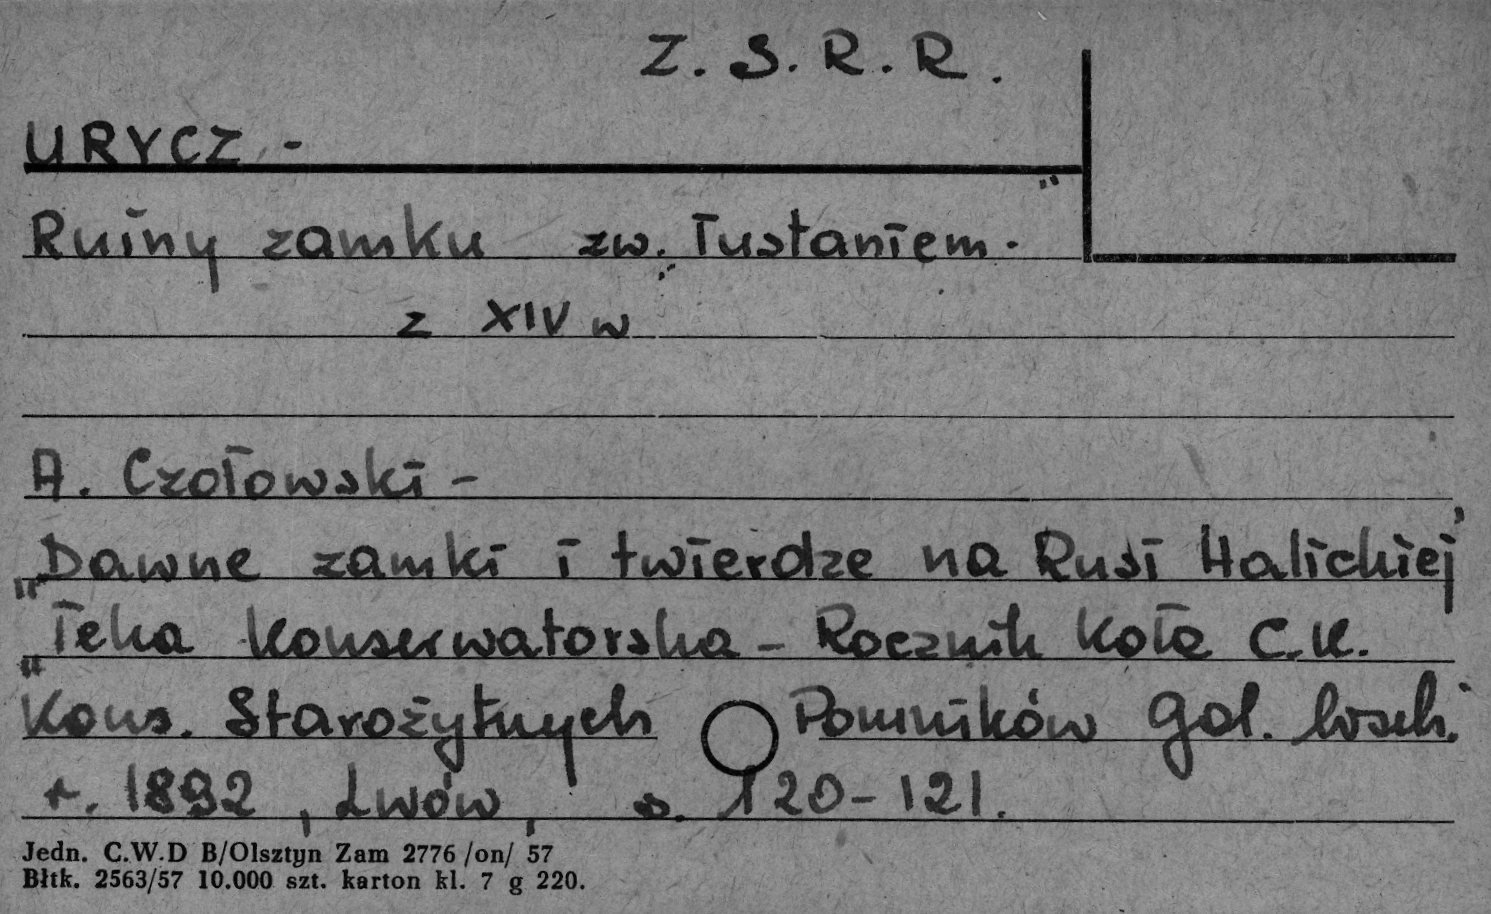 Z. S. R. R.
URYCZ -
Ruiny zamku zw. „Tustaniem".
z XIV w
A. Czołowski -
„Dawne zamki i twierdze na Rusi Halickiej"
„Teka Konserwatorska - Rocznik Koła C.K.
Kons. Starożytnych Pomników Gal. Wsch."
r. 1892, Lwów, s. 120-121.
Jedn. C.W.D B/Olsztyn Zam 2776 /on/ 57
Błtk. 2563/57 10.000 szt. karton kl. 7 g 220.